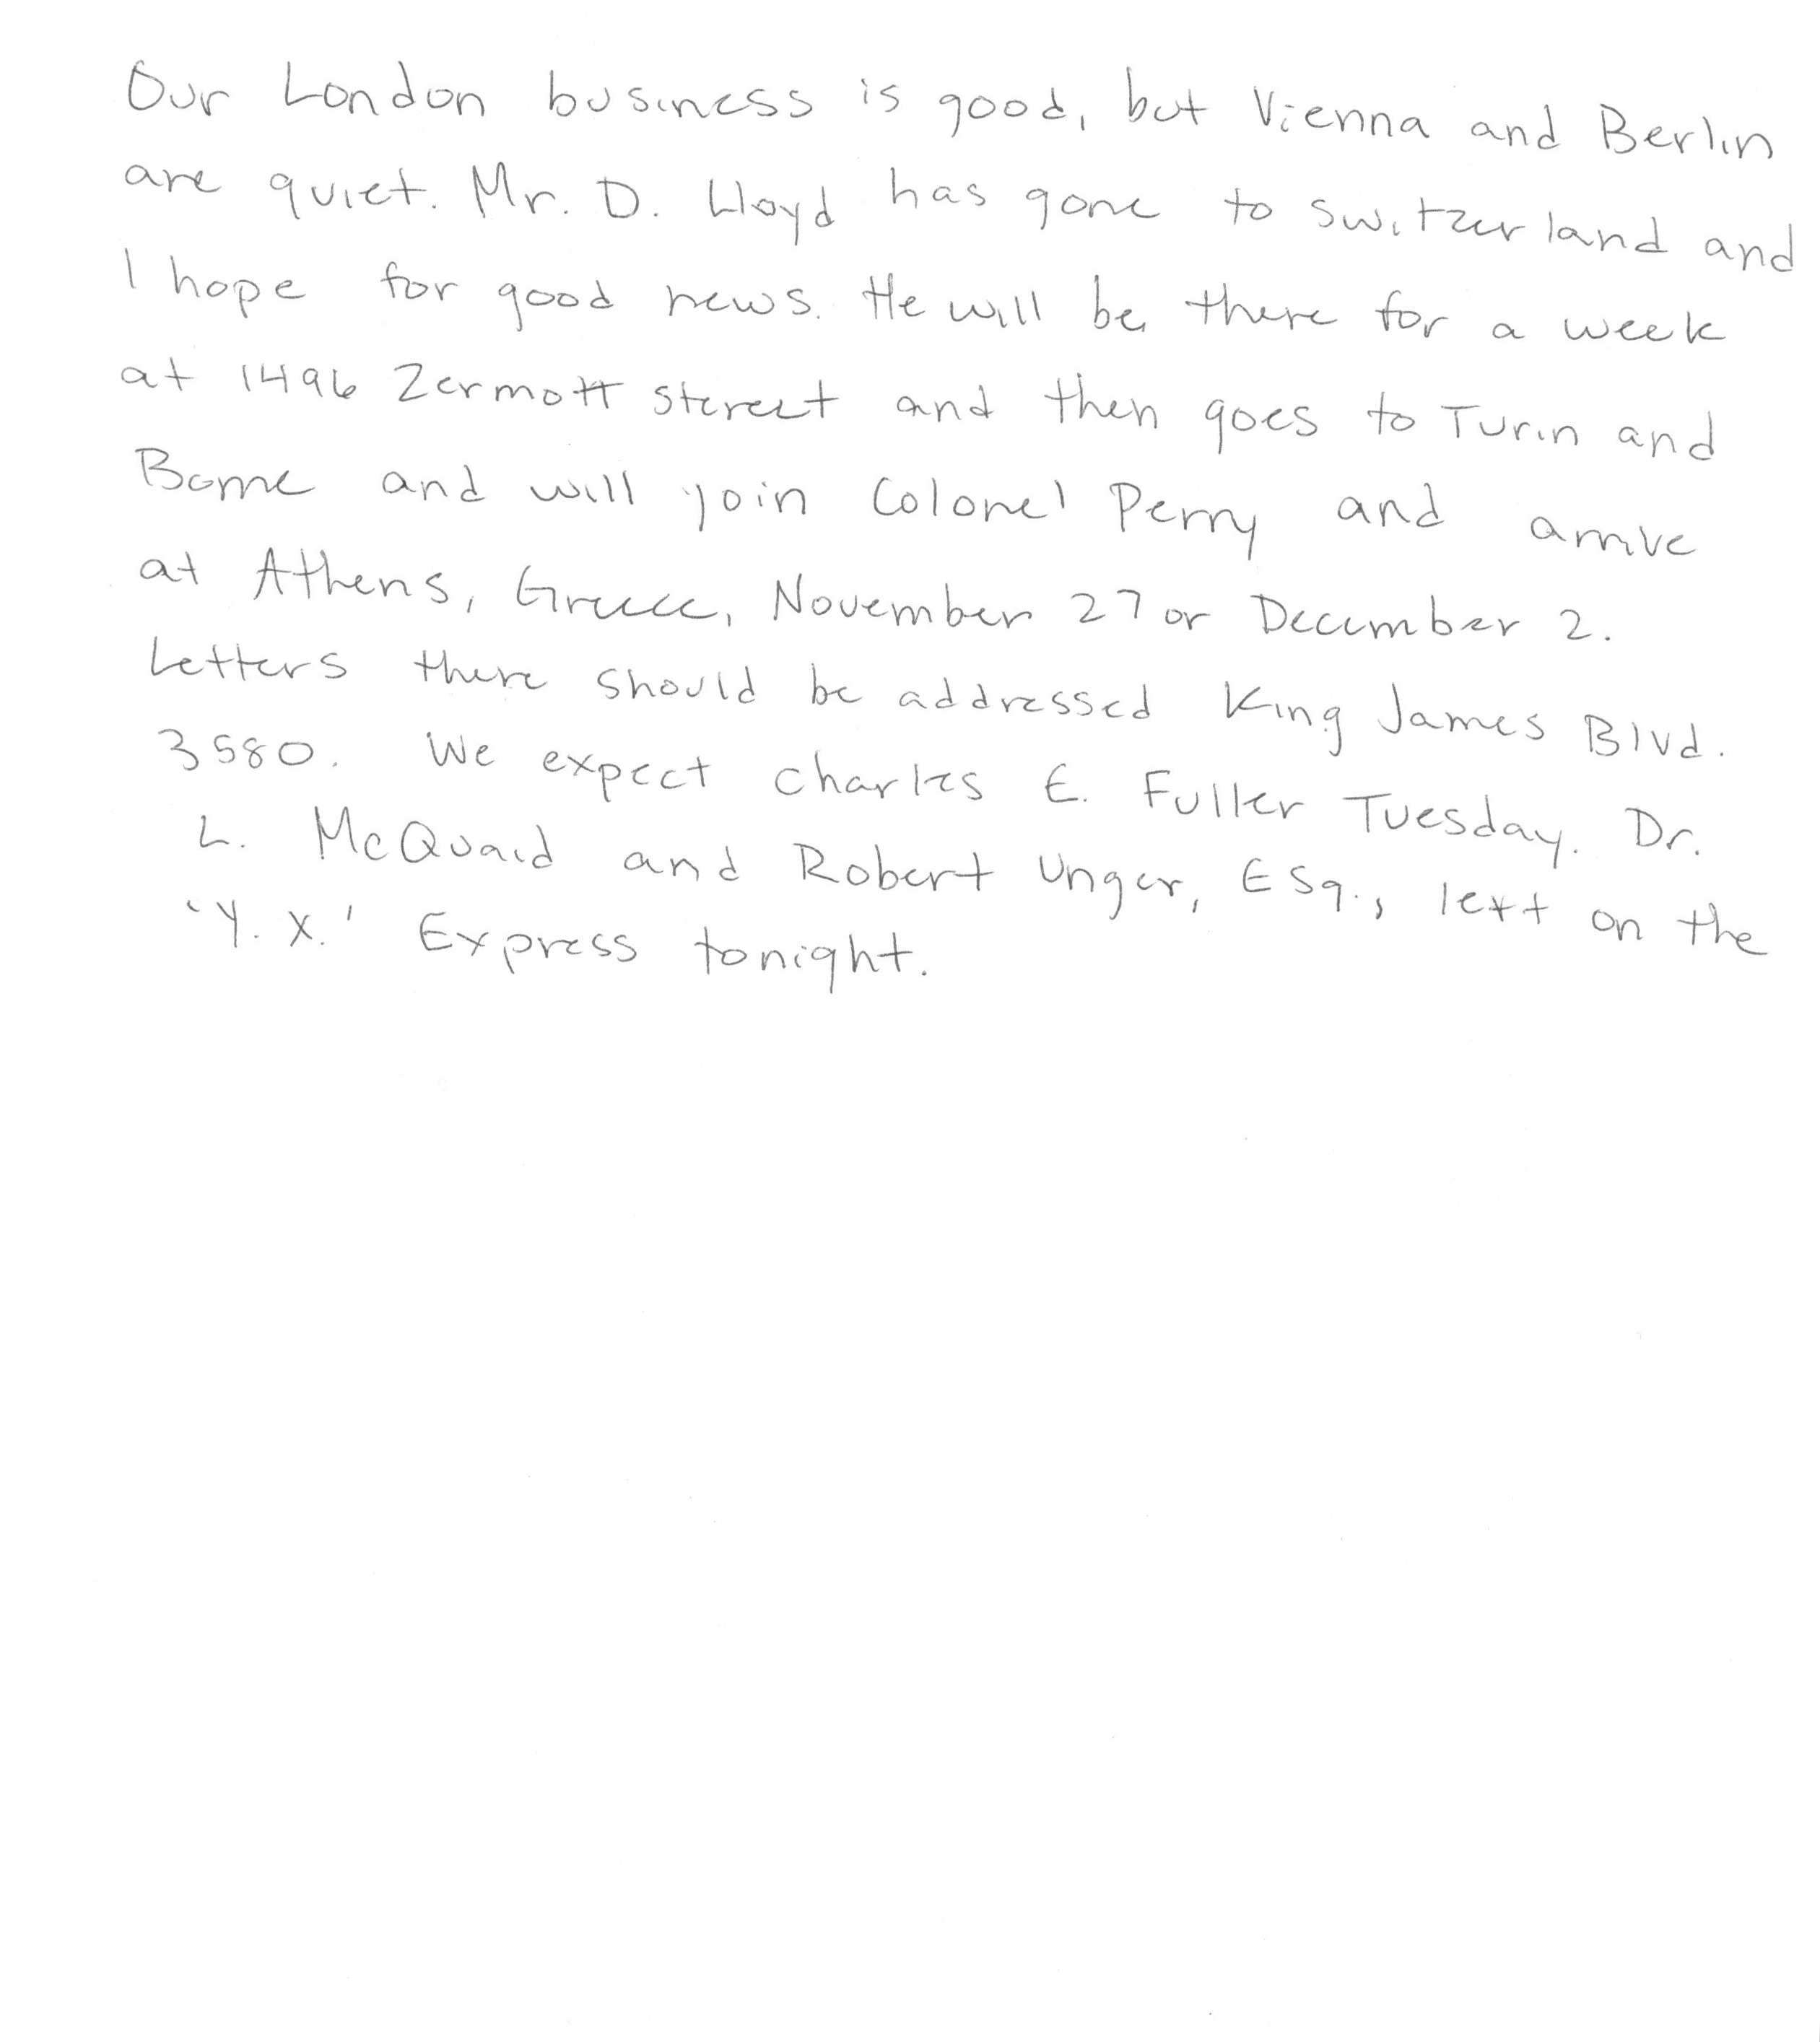 Our London business is good, but Vienna and Berlin
are quiet. Mr. D. Lloyd has gone to switzerland and
I hope for good news. He will be there for a week
at 1496 Zermott stereet and then goes to Turin and
Bome and will join Colonel Perry and arrive
at Athens, Greece, November 27 or December 2.
Letters there should be addressed King James Blvd.
3580. We expect Charles E. Fuller Tuesday. Dr.
L. McQuaid and Robert Unger, Esq., left on the
'Y. X.' Express tonight.